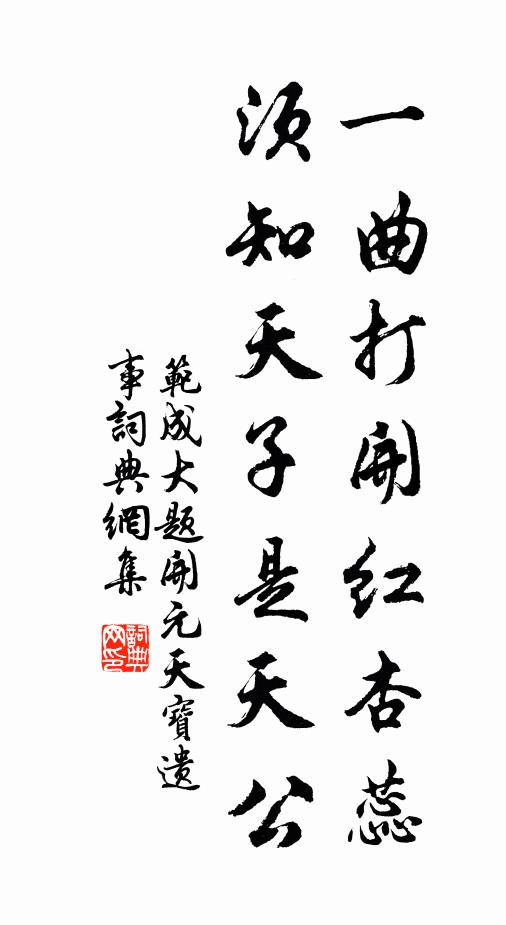 一曲打開红杏蕊
须知天子是天公
範成大题開元天寶遺
事詞典網集
詞典
网印